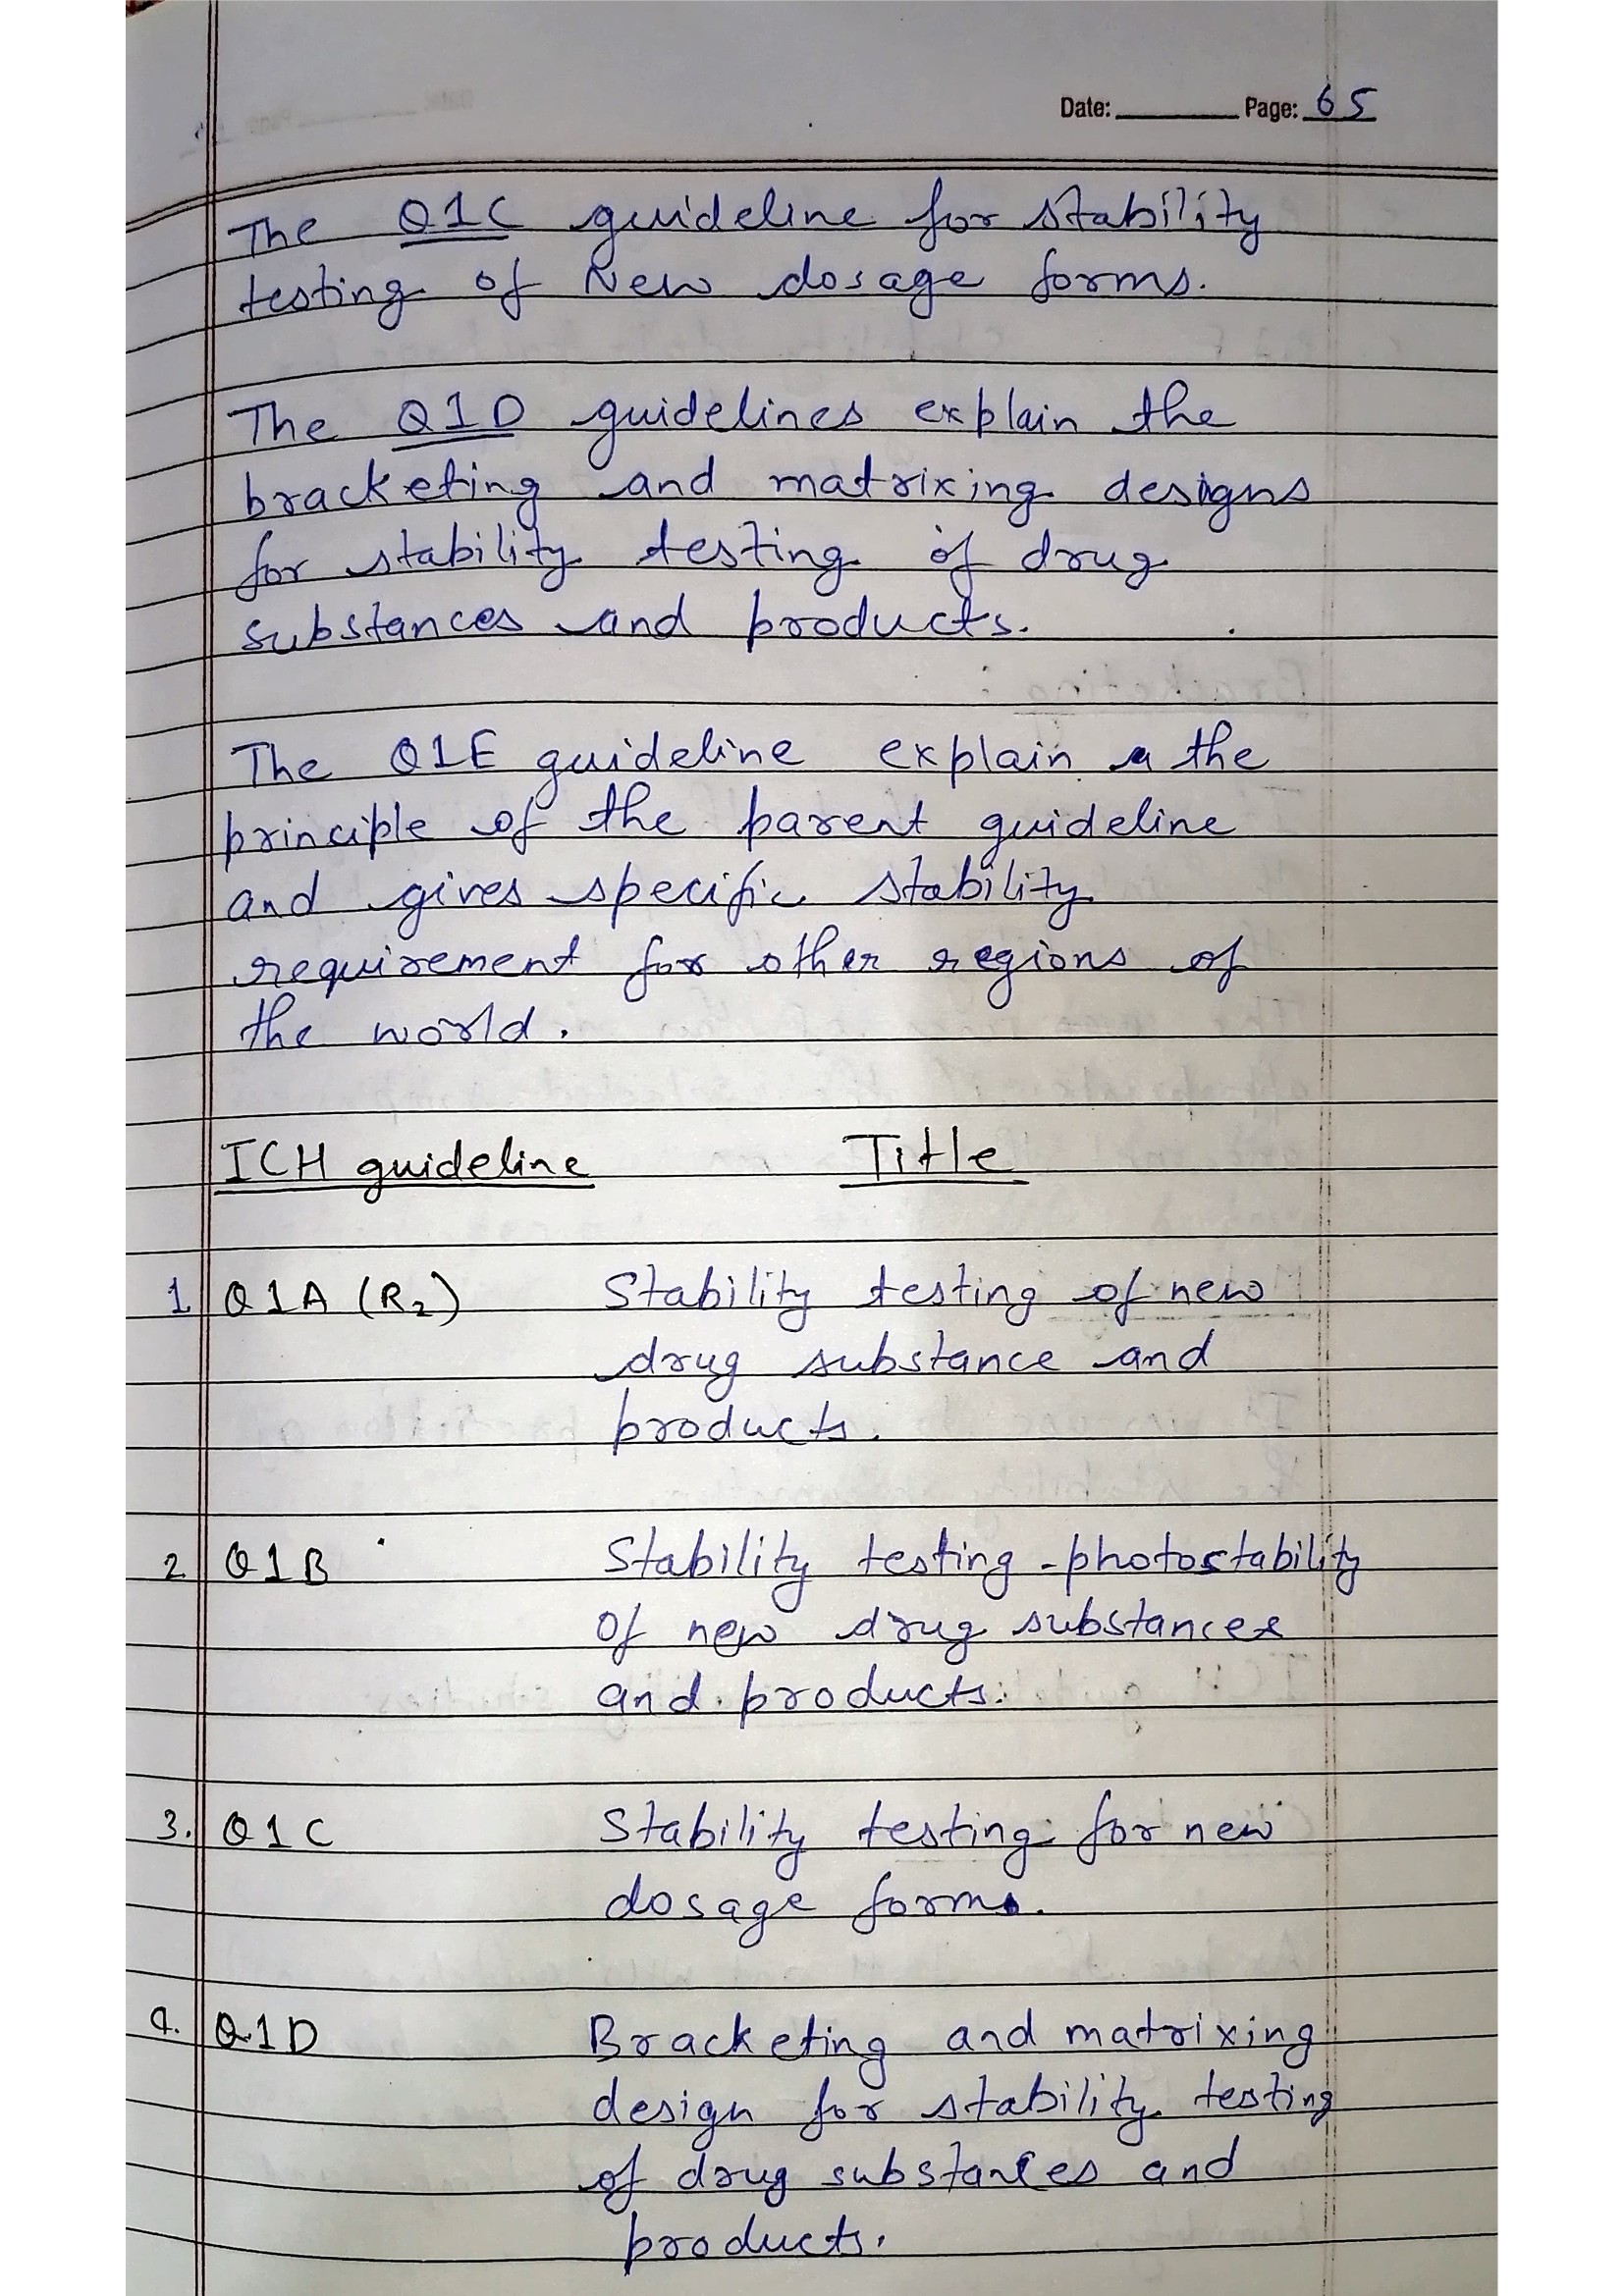 Date: Page: 65
The Q1C guideline for stability
testing of New dosage forms.
The Q1D guidelines explain the
bracketing and matrixing designs
for stability testing of drug
substances and products.
The Q1E guideline explain the
principle of the parent guideline
and gives specific stability
requirement for other regions of
the world.
ICH guideline Title
1 Q1A (R2) Stability testing of new
drug substance and
products.
2 Q1B Stability testing - photostability
of new drug substances
and products.
3. Q1C Stability testing for new
dosage forms.
4. Q1D Bracketing and matrixing
design for stability testing
of drug substances and
products.